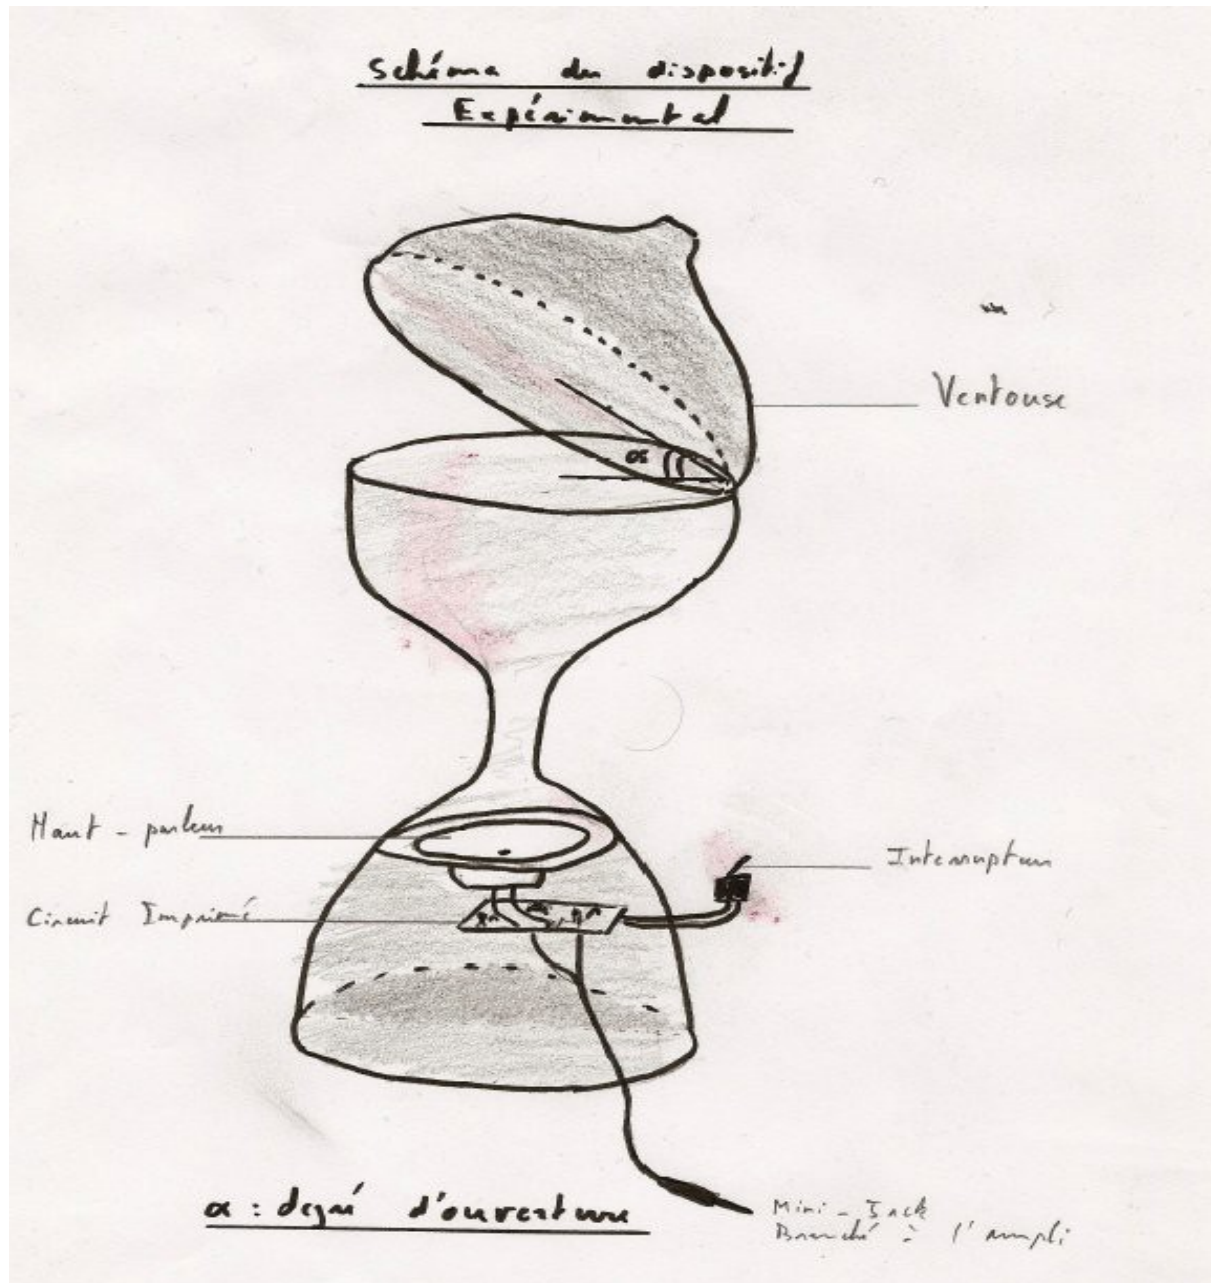 Schéma du dispositif
Expérimental
Ventouse
α
Haut-parleur
Interrupteur
Circuit Imprimé
α : degré d'ouverture
Mini-Jack
Branché à l'ampli